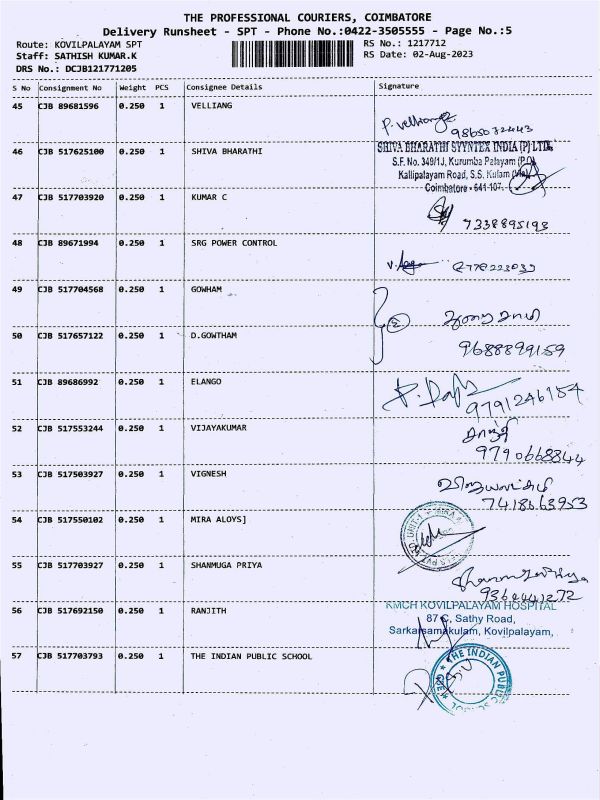 THE PROFESSIONAL COURIERS, COIMBATORE
Delivery Runsheet - SPT - Phone No.:0422-3505555 - Page No.:5
Route: KOVILPALAYAM SPT
RS No.: 1217712
Staff: SATHISH KUMAR.K
RS Date: 02-Aug-2023
DRS No.: DCJB121771205
S No Consignment No Weight PCS Consignee Details Signature
45 CJB 89681596 0.250 1 VELLIANG
46 CJB 517625100 0.250 1 SHIVA BHARATHI
SHIVA BHARATHI SYYNTEX INDIA (P) LTD.
S.F. No. 349/1J, Kurumba Palayam (P.O)
Kallipalayam Road, S.S. Kulam (Via)
Coimbatore - 641 107.
47 CJB 517703920 0.250 1 KUMAR C
7338895193
48 CJB 89671994 0.250 1 SRG POWER CONTROL
49 CJB 517704568 0.250 1 GOWHAM
50 CJB 517657122 0.250 1 D.GOWTHAM
9688899159
51 CJB 89686992 0.250 1 ELANGO
9791246154
52 CJB 517553244 0.250 1 VIJAYAKUMAR
9790668844
53 CJB 517503927 0.250 1 VIGNESH
7418663953
54 CJB 517550102 0.250 1 MIRA ALOYS]
55 CJB 517703927 0.250 1 SHANMUGA PRIYA
9364441272
56 CJB 517692150 0.250 1 RANJITH
KMCH KOVILPALAYAM HOSPITAL
Sathy Road,
Sarkarsamakulam, Kovilpalayam,
57 CJB 517703793 0.250 1 THE INDIAN PUBLIC SCHOOL
THE INDIAN PUBLIC